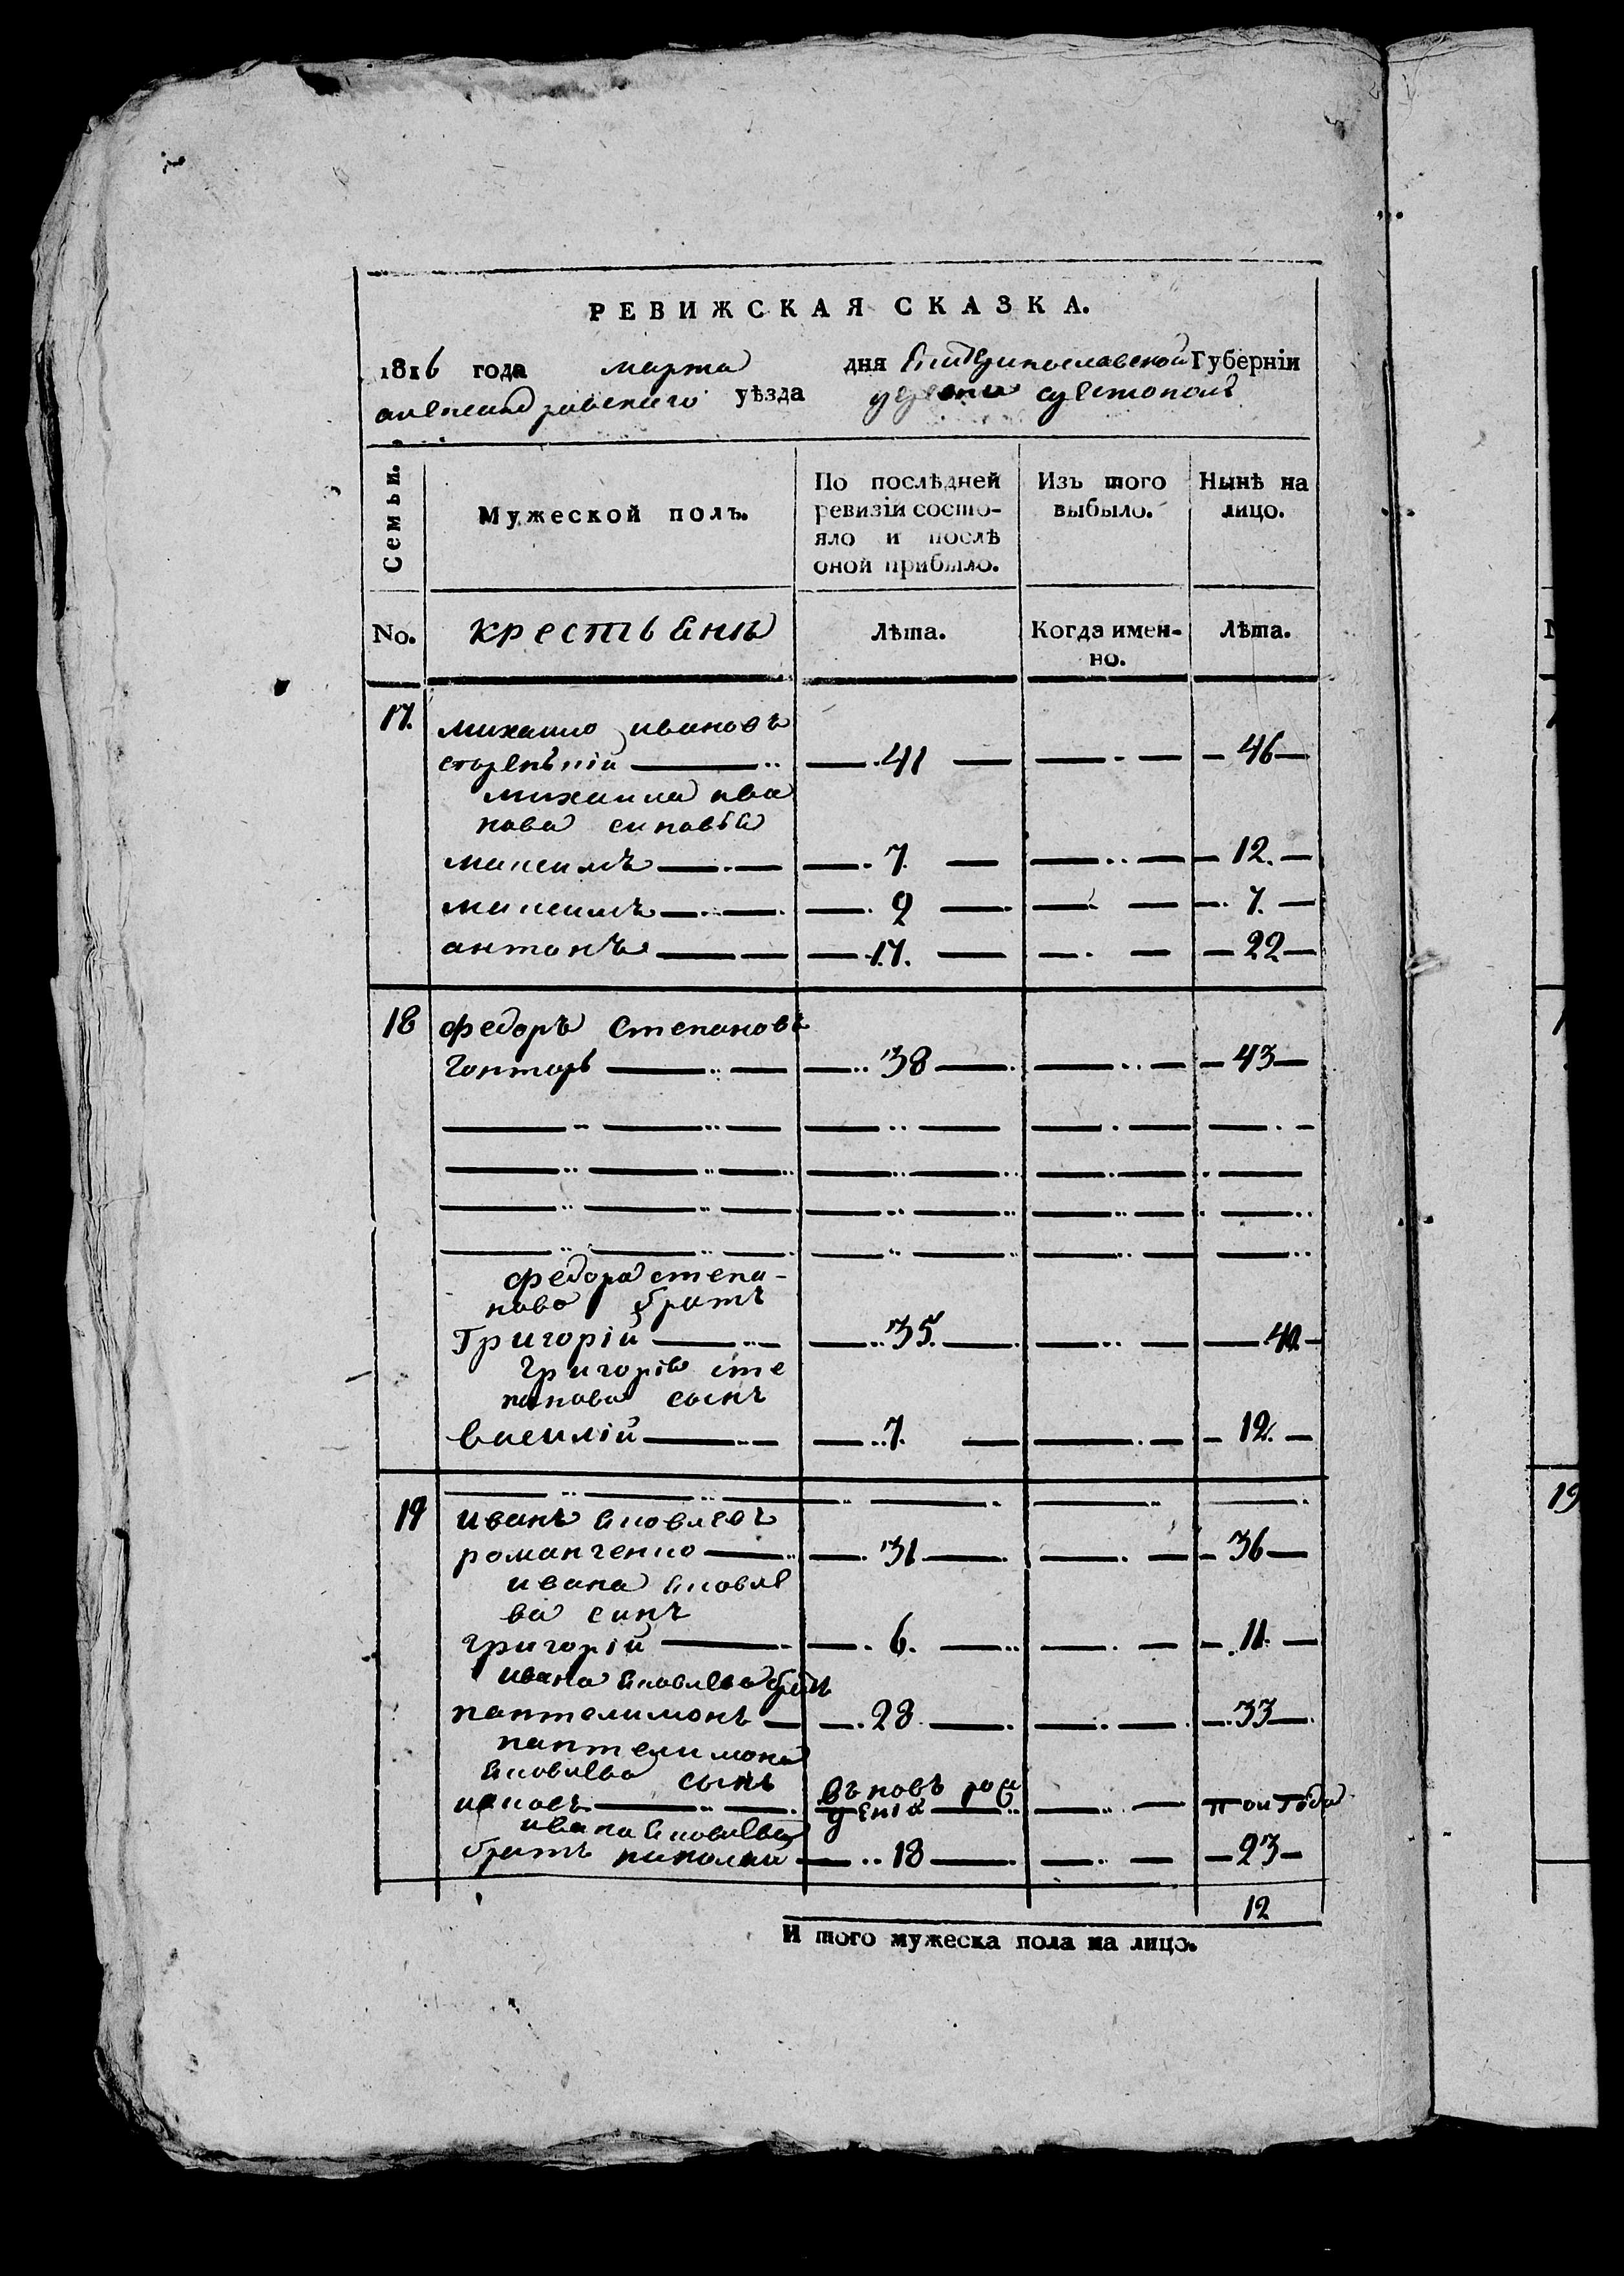 РЕВИЖСКАЯ СКАЗКА.
1816 года марта дня Екатеринославской Губерніи
александровскаго уѣзда
Семьи. Мужеской полъ. По послѣдней ревизіи состояло и послѣ оной прибыло. Изъ того выбыло. Нынѣ на лицо.
No. крестьяне Лѣта. Когда именно. Лѣта.
17. михаило ивановъ
41 46
михаила ива
нова синовья
максимъ 7. 12.
максимъ 2 7.
антонъ 17. 22
18 федоръ степановъ
гонтарь 38 43
федора степа-
нова братъ
Григорій 35. 40.
григорія сте
панова сынъ
василій 7. 12.
19 иванъ яковлевъ
романченко 31 36
ивана яковле
ва синъ
григорій 6. 11.
ивана яковлева братъ
пантелимонъ 28 33
пантелимона
яковлева сынъ въ новъ рож
яковъ денія пол года
ивана яковлева
братъ николай 18 23
12
И того мужеска пола на лицо.
19